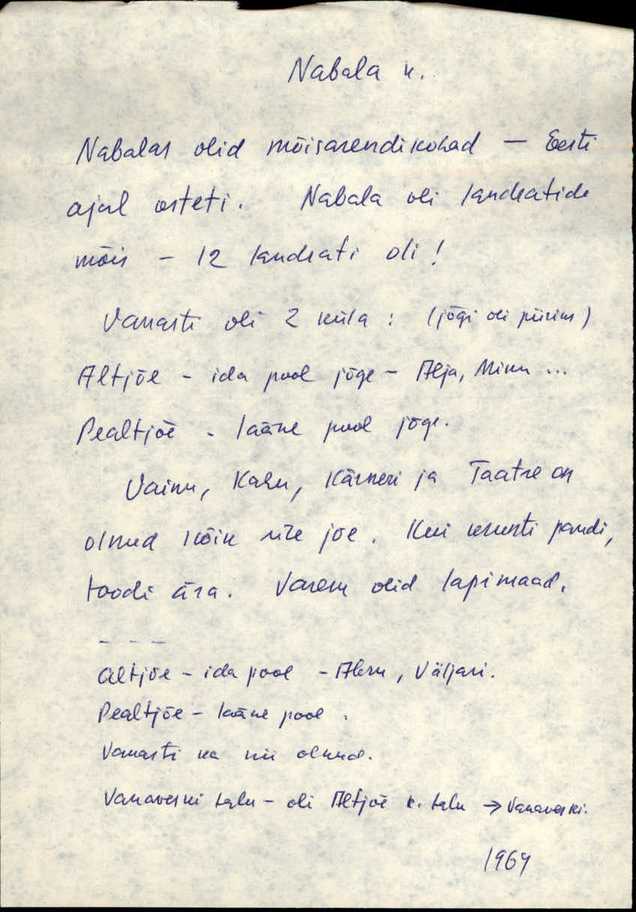 Nabala k.
Nabalas olid mõisarendikohad – Eesti
ajal osteti. Nabala oli landratide
mõis – 12 landrati oli!
Vanasti oli 2 küla: (jõgi oli piirim)
Altjõe – ida pool jõge – Alja, ...
Pealtjõe – lääne pool jõge.
Vainu, Kasu, Kärneri ja Taatre on
olnud kõik üle jõe. Kui krunti pandi,
toodi ära. Varem olid lapimaad.
– – –
Altjõe – ida pool – , Väljari.
Pealtjõe – lääne pool.
Vanasti ka nii olnud.
Vanaveski talu – oli Altjõe k. talu → Vanaveski.
1964